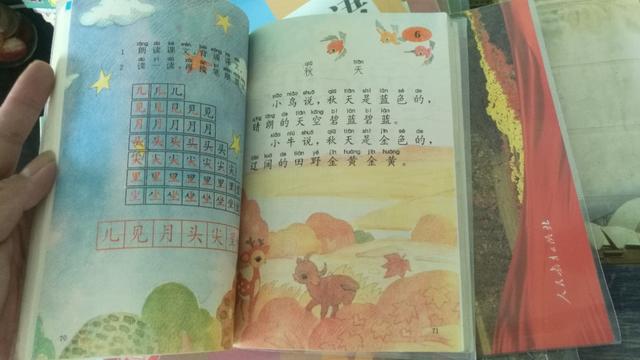 1 朗读课文,背诵
2 读一读,再
儿 儿 儿
见 见 见 见 见
月 月 月 月 月
头 头 头 头 头 头
尖 尖 尖 尖 尖 尖
里 里 里 里 里 里 里
坐 坐 坐 坐 坐 坐 坐
儿 见 月 头 尖 里
70
6
qiū tiān
秋 天
xiǎo niǎo shuō qiū tiān shì lán sè de
小鸟说,秋天是蓝色的,
qíng lǎng de tiān kōng bì lán bì lán
晴朗的天空碧蓝碧蓝。
xiǎo niú shuō qiū tiān shì jīn sè de
小牛说,秋天是金色的,
liáo kuò de tián yě jīn huáng jīn huáng
辽阔的田野金黄金黄。
71
人民教育出版社